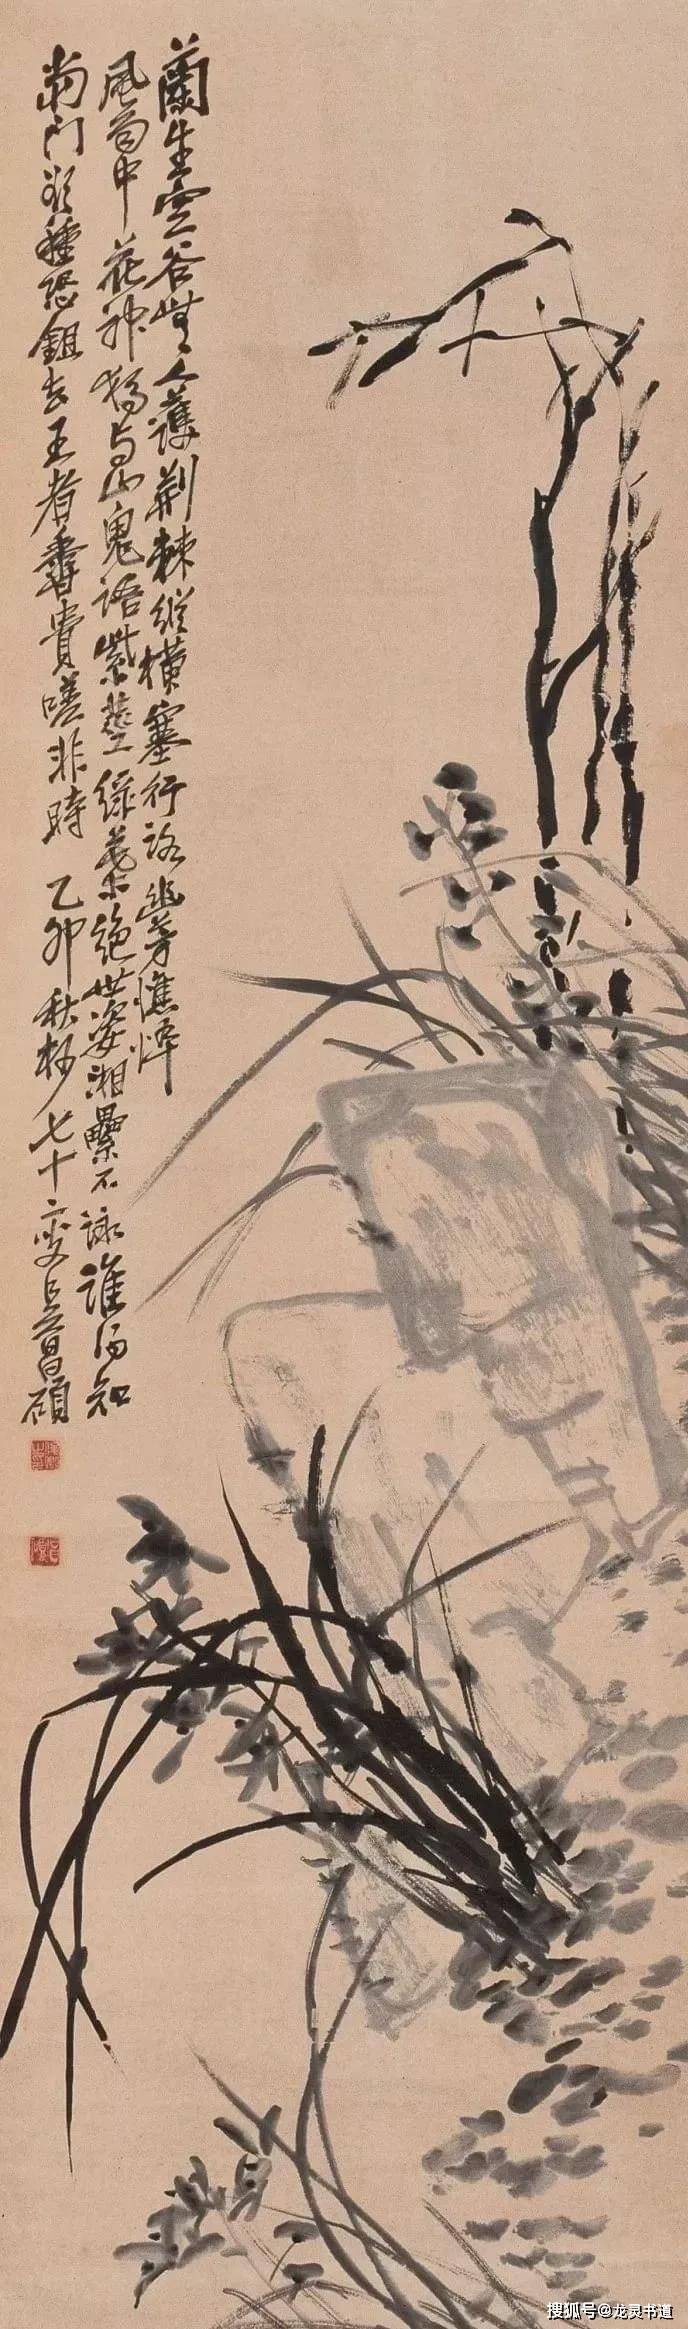 蘭生空谷無人護荆棘縱橫塞行路幽芳憔悴
風雨中花神獨与山鬼語紫莖綠葉絕世姿湘纍不詠誰得知
當門欲種恐鉏去王者香貴嗟非時 乙卯秋杪七十二叟吳昌碩
搜狐号@龙灵书道